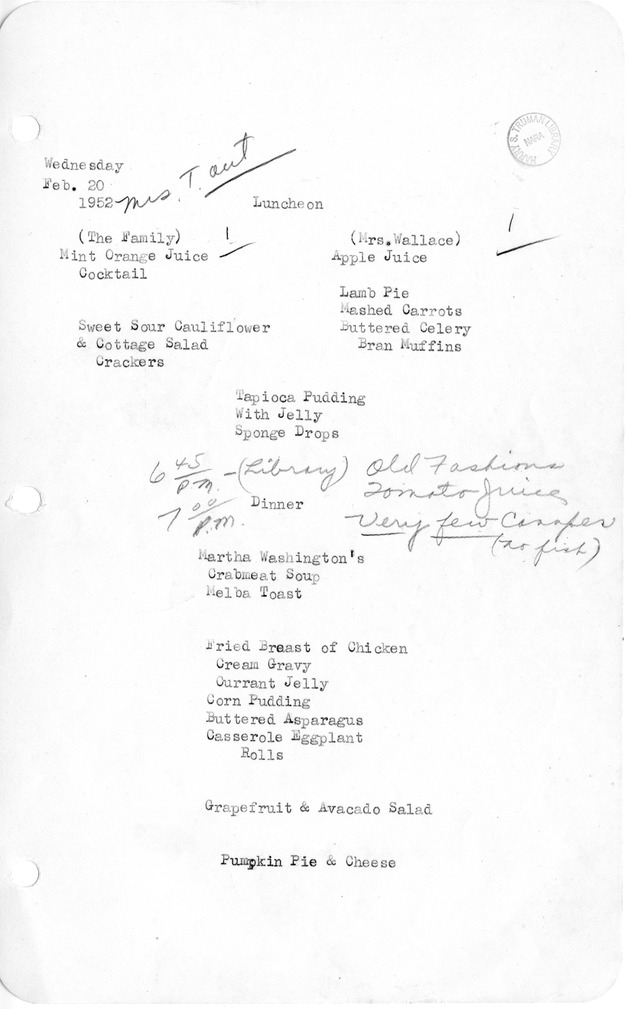 HARRY S. TRUMAN LIBRARY
NARA
Wednesday
Feb. 20
1952 Mrs. T. out
Luncheon
(The Family) 1
Mint Orange Juice
Cocktail
Sweet Sour Cauliflower
& Cottage Salad
Crackers
(Mrs.Wallace) 1
Apple Juice
Lamb Pie
Mashed Carrots
Buttered Celery
Bran Muffins
Tapioca Pudding
With Jelly
Sponge Drops
6 45 P.M. - (Library) Old Fashions
Tomato Juice
Very few Canapes
(no fish)
7 00 P.M. Dinner
Martha Washington's
Crabmeat Soup
Melba Toast
Fried Breast of Chicken
Cream Gravy
Currant Jelly
Corn Pudding
Buttered Asparagus
Casserole Eggplant
Rolls
Grapefruit & Avacado Salad
Pumpkin Pie & Cheese